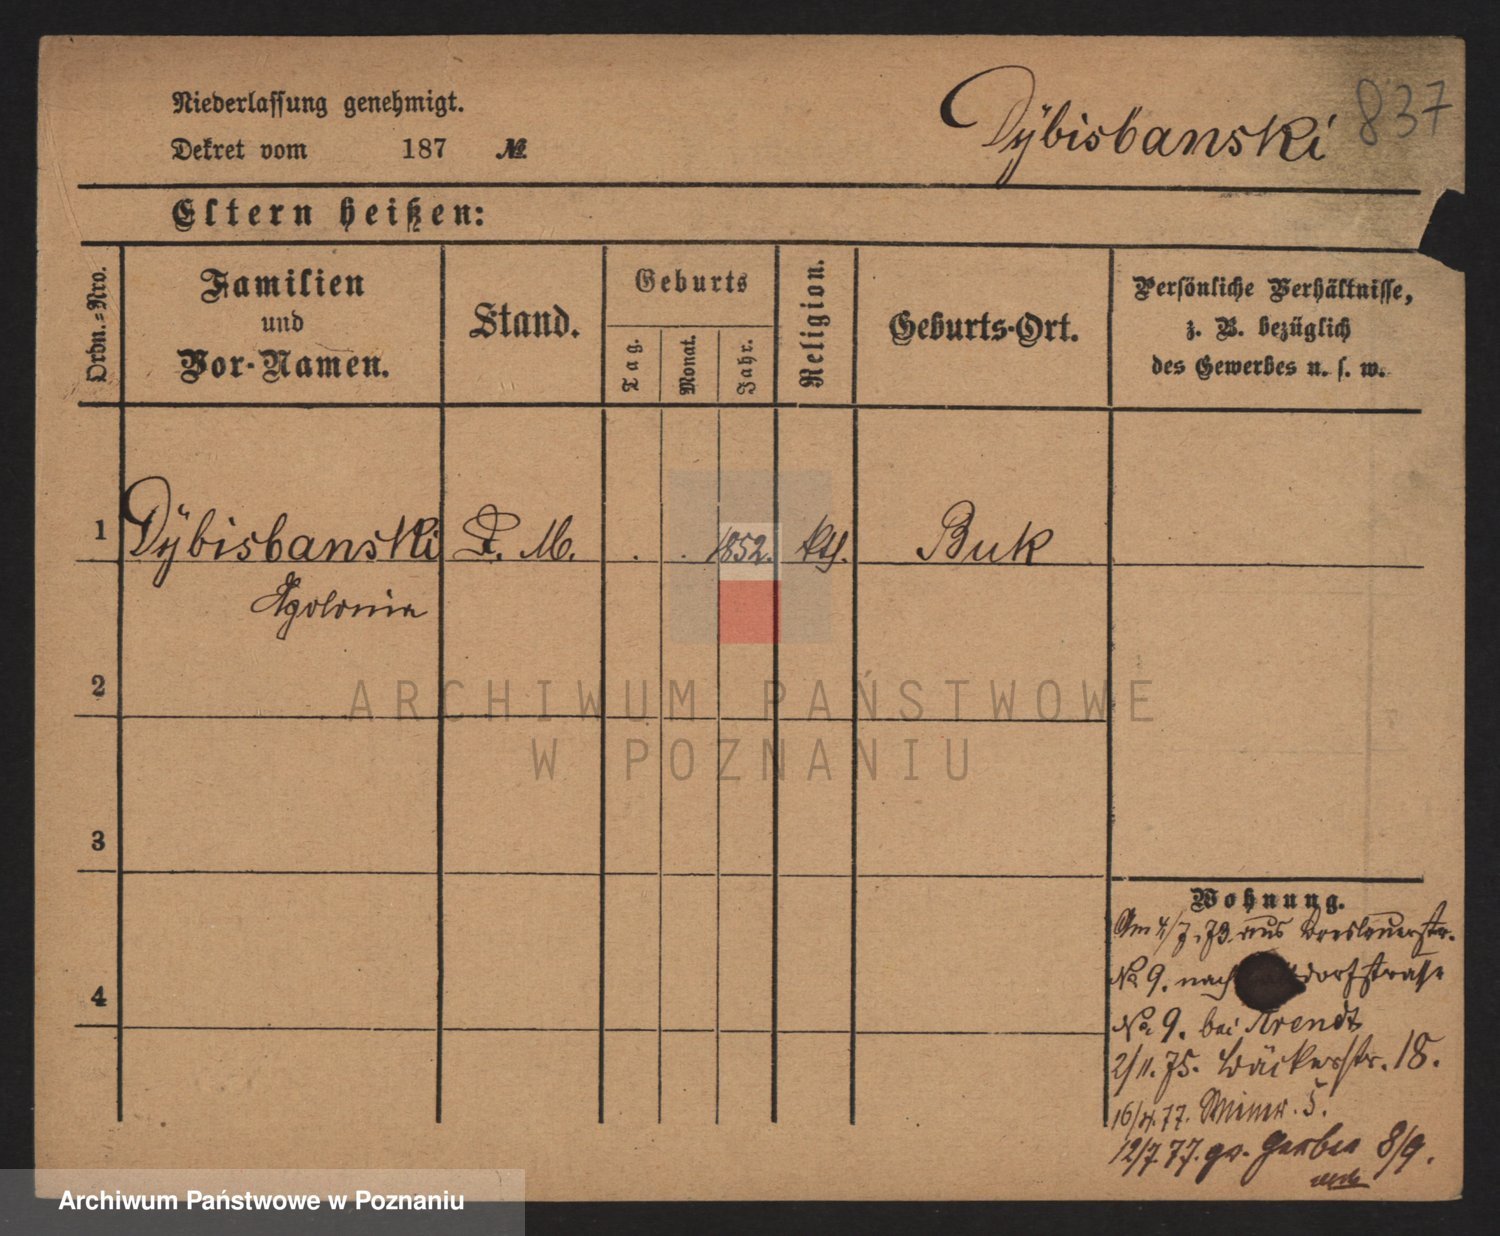 Niederlassung genehmigt.
Dekret vom 187 №
Dÿbisbanski
837
Eltern heißen:
Ordn.-Nro.
Familien
und
Vor-Namen.
Stand.
Geburts
Tag.
Monat.
Jahr.
Religion.
Geburts-Ort.
Persönliche Verhältnisse,
z. B. bezüglich
des Gewerbes u. s. w.
1 Dÿbisbanski D. M. . . 1852. kth. Buk
Apolonia
2
3
4
Wohnung.
Am 4/7. 73 aus Breslauerstr.
No 9. nach dorfstrasse
No 9. bei Arendt
2/11. 75. Bäckerstr. 18.
16/4. 77. 5.
12/7. 77. gr. Gerber 8/9.
ARCHIWUM PAŃSTWOWE
W POZNANIU
Archiwum Państwowe w Poznaniu